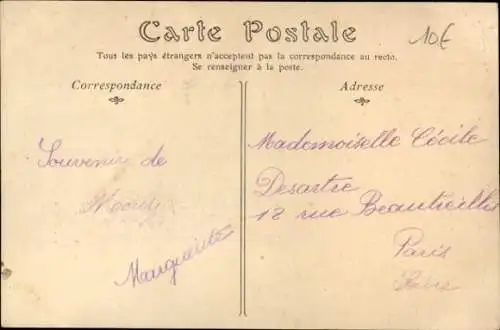 Carte Postale
10€
Tous les pays étrangers n'acceptent pas la correspondance au recto.
Se renseigner à la poste.
Correspondance
Souvenir de
Marguerite
Adresse
Mademoiselle Cécile
Desastre
12 rue Beautreillis
Paris